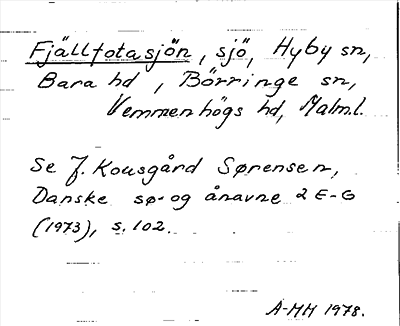 Fjällfotasjön, sjö, Hyby sn,
Bara hd, Börringe sn,
Vemmenhögs hd, Malm.l.
Se J. Kousgård Sørensen,
Danske sø- og ånavne 2 E-G
(1973), s. 102.
A-MH 1978.